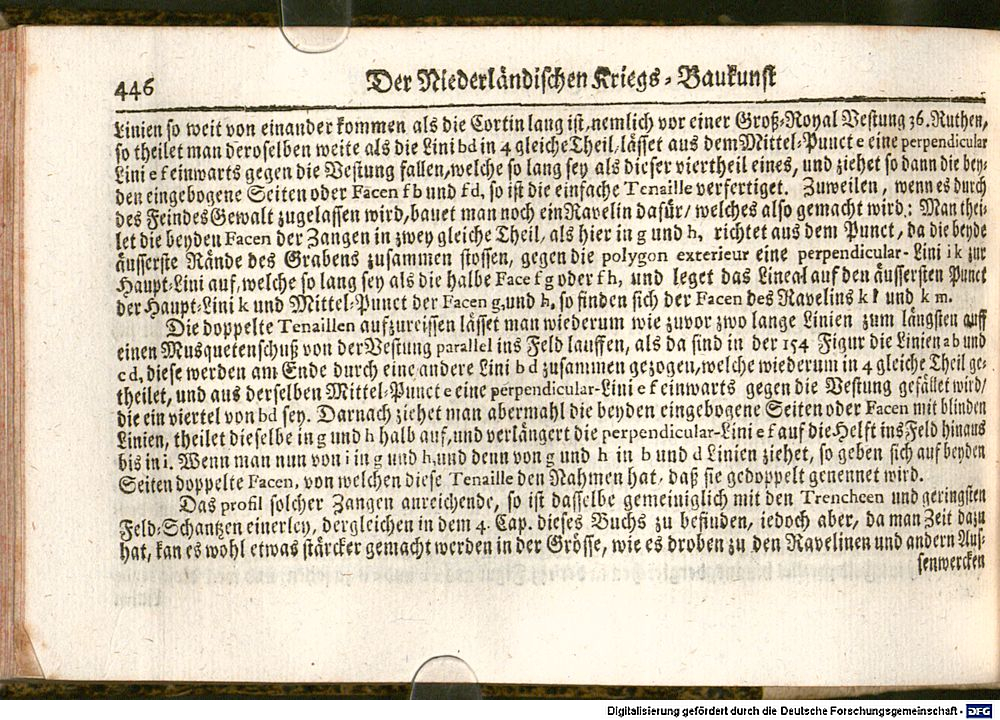 446 Der Niederländischen Kriegs-Baukunst
Linien so weit von einander kommen als die Cortin lang ist, nemlich vor einer Groß-Royal Vestung 36. Ruthen,
so theilet man deroselben weite als die Lini bd in 4 gleiche Theil, lässet aus dem Mittel-Punct e eine perpendicular
Lini e f einwarts gegen die Vestung fallen, welche so lang sey als dieser viertheil eines, und ziehet so dann die bey-
den eingebogene Seiten oder Facen f b und f d, so ist die einfache Tenaille verfertiget. Zuweilen, wenn es durch
des Feindes Gewalt zugelassen wird, bauet man noch ein Ravelin dafür/ welches also gemacht wird: Man thei-
let die beyden Facen der Zangen in zwey gleiche Theil, als hier in g und h, richtet aus dem Punct, da die beyde
äusserste Rände des Grabens zusammen stossen, gegen die polygon exterieur eine perpendicular-Lini i k zur
Haupt-Lini auf, welche so lang sey als die halbe Face f g oder f h, und leget das Lineal auf den äussersten Punct
der Haupt-Lini k und Mittel-Punct der Facen g, und h, so finden sich der Facen des Ravelins k l und k m.
Die doppelte Tenaillen aufzureissen lässet man wiederum wie zuvor zwo lange Linien zum längsten auff
einen Musquetenschuß von der Vestung parallel ins Feld lauffen, als da sind in der 154 Figur die Linien a b und
c d, diese werden am Ende durch eine andere Lini b d zusammen gezogen, welche wiederum in 4 gleiche Theil ge-
theilet, und aus derselben Mittel-Punct e eine perpendicular-Lini e f einwarts gegen die Vestung gefället wird/
die ein viertel von bd sey. Darnach ziehet man abermahl die beyden eingebogene Seiten oder Facen mit blinden
Linien, theilet dieselbe in g und h halb auf, und verlängert die perpendicular-Lini e f auf die Helft ins Feld hinaus
bis in i. Wenn man nun von i in g und h, und denn von g und h in b und d Linien ziehet, so geben sich auf beyden
Seiten doppelte Facen, von welchen diese Tenaille den Nahmen hat, daß sie gedoppelt genennet wird.
Das profil solcher Zangen anreichende, so ist dasselbe gemeiniglich mit den Trencheen und geringsten
Feld-Schantzen einerley, dergleichen in dem 4. Cap. dieses Buchs zu befinden, iedoch aber, da man Zeit dazu
hat, kan es wohl etwas stärcker gemacht werden in der Grösse, wie es droben zu den Ravelinen und andern Auß-
senwercken
Digitalisierung gefördert durch die Deutsche Forschungsgemeinschaft - DFG